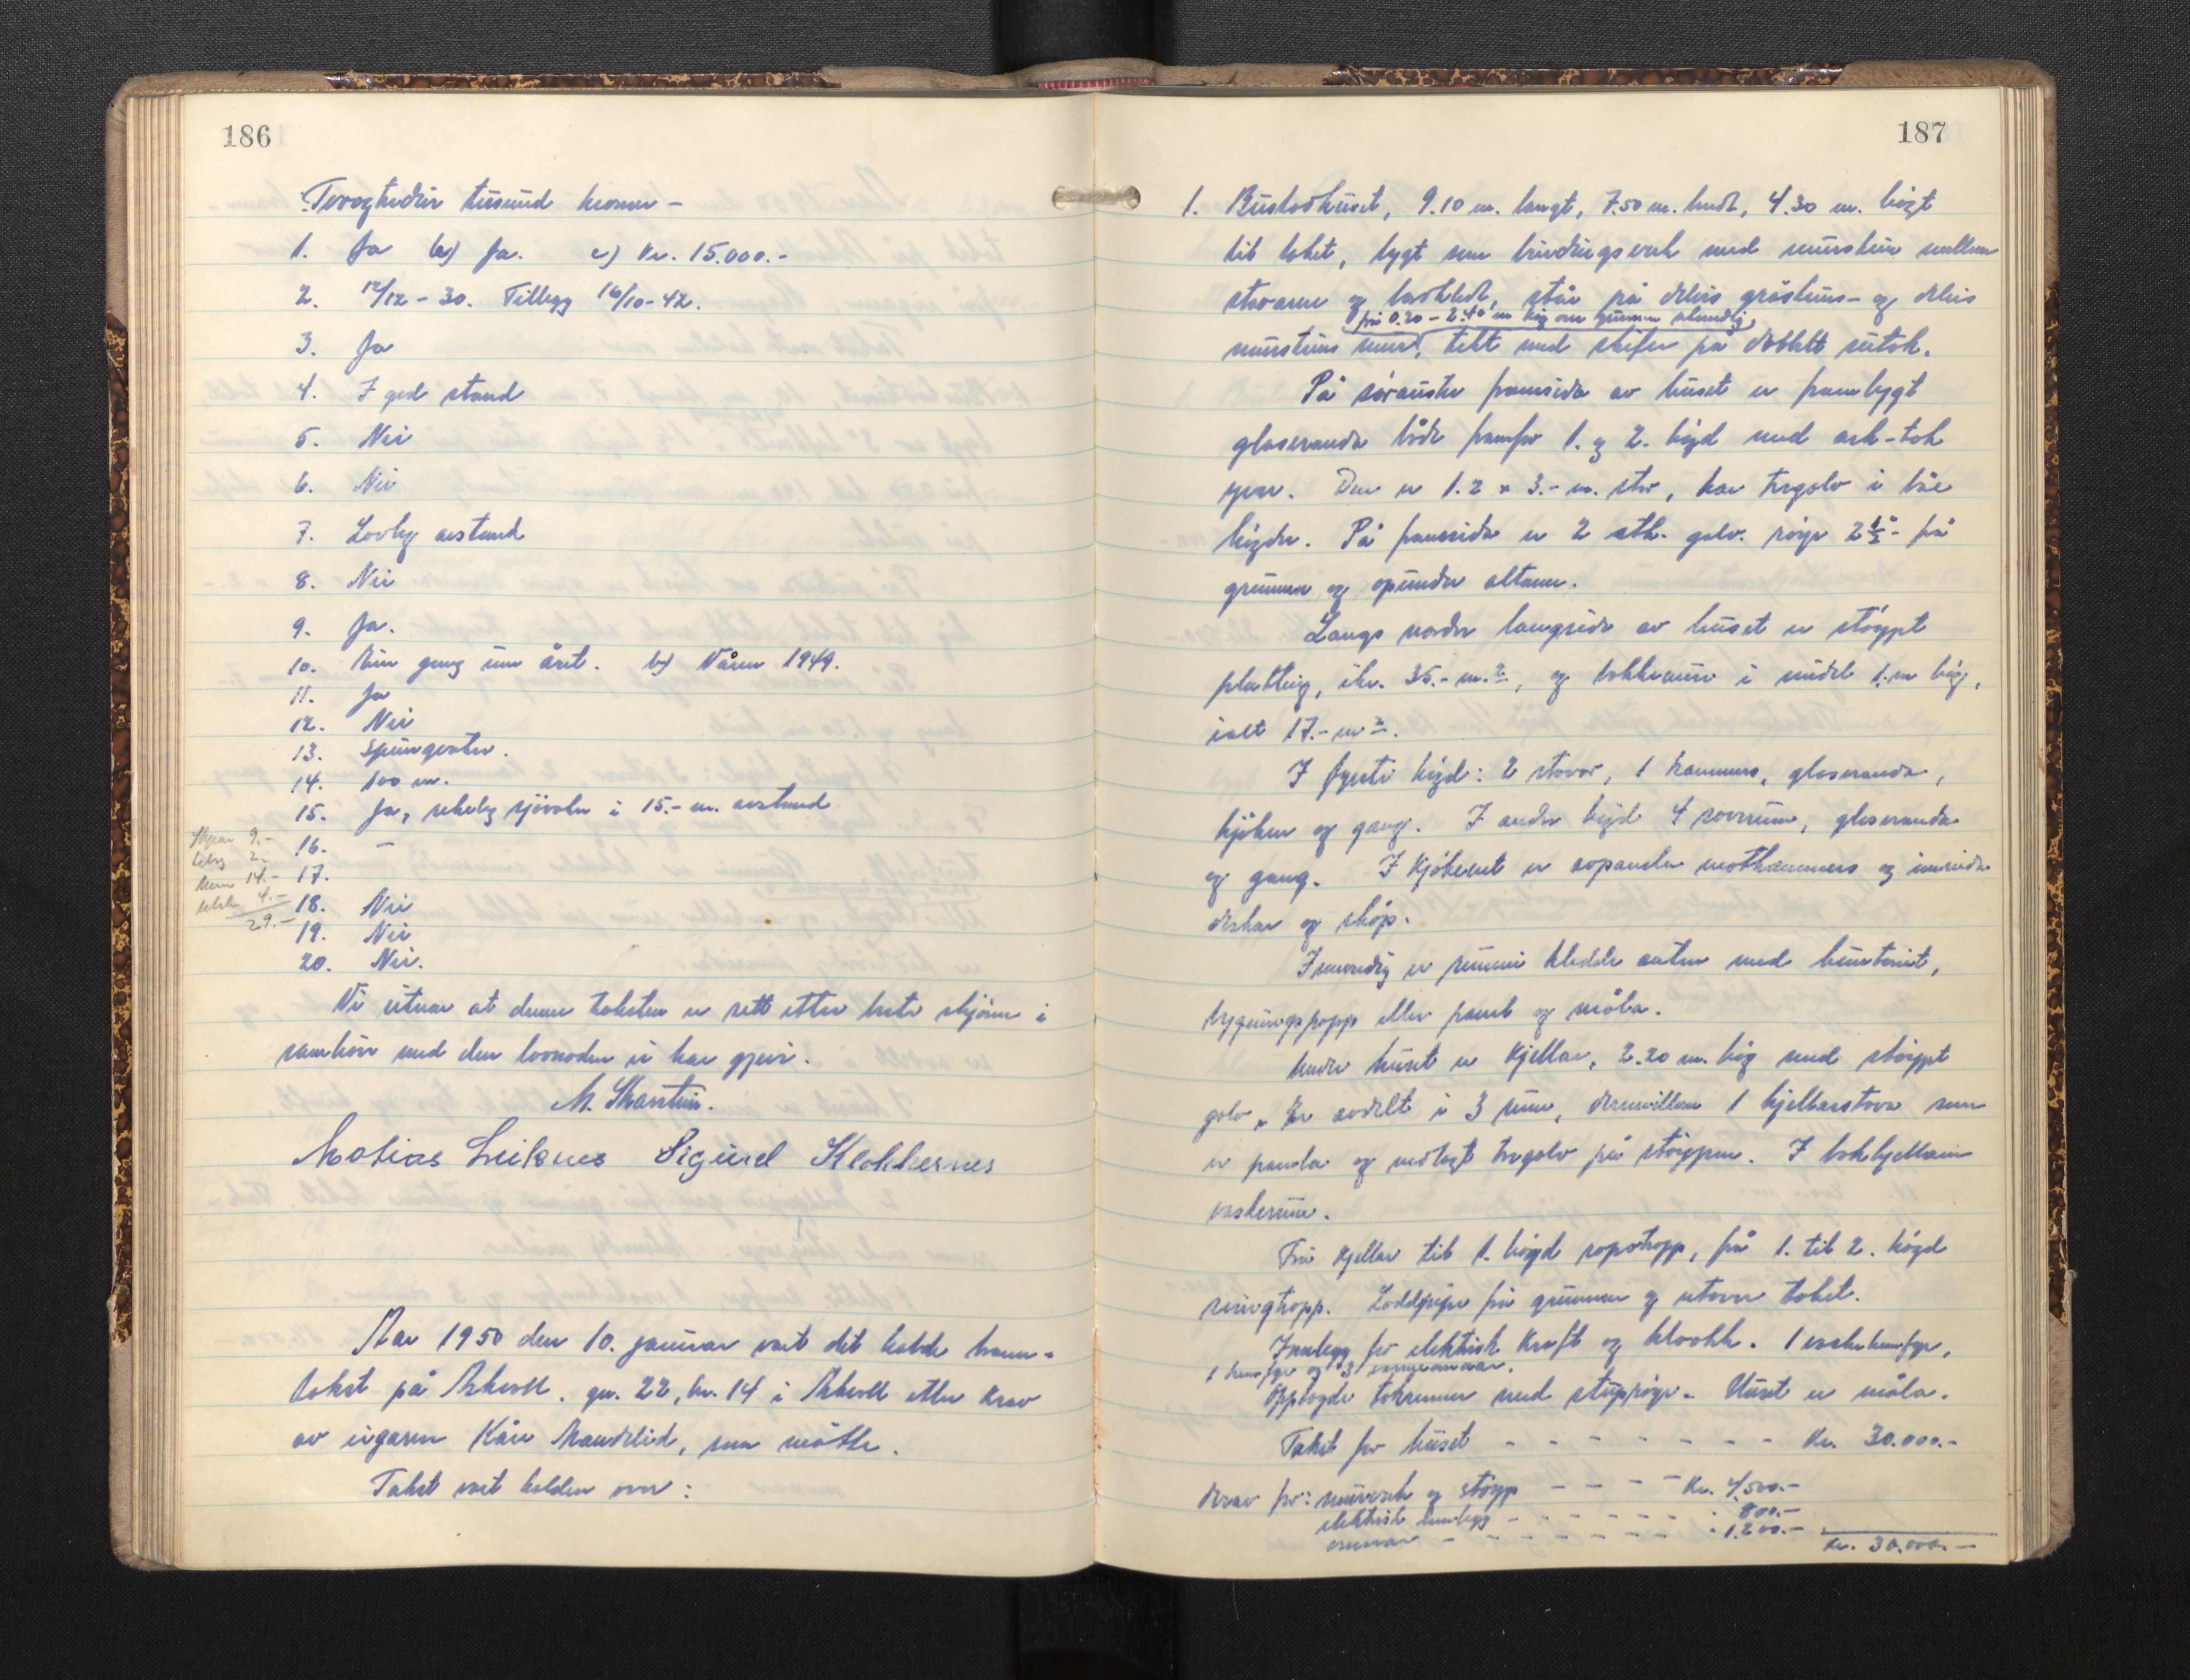 186
Tvoghudur tusund kronor -
1. Ja b) Ja. c) Kr. 15.000.-
2. 12/12 - 30. Tillegg 16/10-42.
3. Ja
4. I god stand
5. Nei
6. Nei
7. Lovleg avstand
8. Nei
9. Ja.
10. Ein gong um året. b) Våren 1949.
11. Ja
12. Nei
13. Springvatn.
14. 100 m.
15. Ja, rekeleg sjövatn i 15.- m. avstand
16. -
17.
18. Nei
19. Nei
20. Nei.
Skyss 9.-
2.-
14.-
4.-
29.-
Vi vitnar at denne taksten er rett etter beste skjönn i
samhöve med den lovnaden vi har gjeve.
M. Skarstein.
Matias Leiknes Sigurd Klokkernes
Aar 1950 den 10. januar vart det halde brann-
takst på Askvoll. gn. 22, bn. 14 i Askvoll etter krav
av eigaren Kåre Mandelid, som mötte.
Takst vart halden over:
187
1. Bustadhuset, 9.10 m. langt, 7.50 m. breidt, 4.30 m. högt
til taket, bygt som bindingsverk med murstein mellom
stovarne og bordkledt, står på delvis gråsteins- og delvis
frå 0.20 - 2.40 m hög over grunnen utvendig
mursteins mur, tekt med skifer på dobbelt sutak.
På söraustre framsida av huset er frambygt
glasveranda både framfor 1. og 2. högd med ark-tak
yver. Den er 1.2 x 3.- m. stor, har tregolv i båe
högder. På framsida er 2 stk. galv. röyr 2 1/2" frå
grunnen og uppunder altanen.
Langs nordre langside av huset er stöypt
platting, ikr. 35.- m.2, og bakkemur i midel 1.m hög,
ialt 17.- m2.
I fyrste högd: 2 stovor, 1 kammers, glasveranda,
kjöken og gang. I andre högd 4 soverum, glasveranda
og gang. I kjökenet er avpanela matkammers og innreidde
diskar og skåp.
Innvendig er rummi kledde anten med huntonit,
bygningspapp eller panel og måla.
Under huset er kjellar, 2.20 m. hög med stöypt
golv. Er avdelt i 3 rum, derimillom 1 kjellarstova som
er panela og nedlagt tregolv på stöypen. I bakkjellaren
vaskerum.
Frå kjellar til 1. högd rapetrapp, frå 1. til 2. högd
svingtrapp. Loddpipe frå grunnen og utover taket.
Innlegg for elektrisk kraft og kloakk. 1 vaskekumfyr,
1 kumfyr og 3 varmeomnar.
Opplagde takrenner med stuprøyr. Huset er måla.
Takst for huset - - - - - - - - Kr. 30.000.-
derav for: murverk og stöyp - - - - Kr. 4.500.-
elektrisk innlegg - - - - - - " 800.-
omnar - - - - - - - - " 1.200.-
Kr. 30.000.-